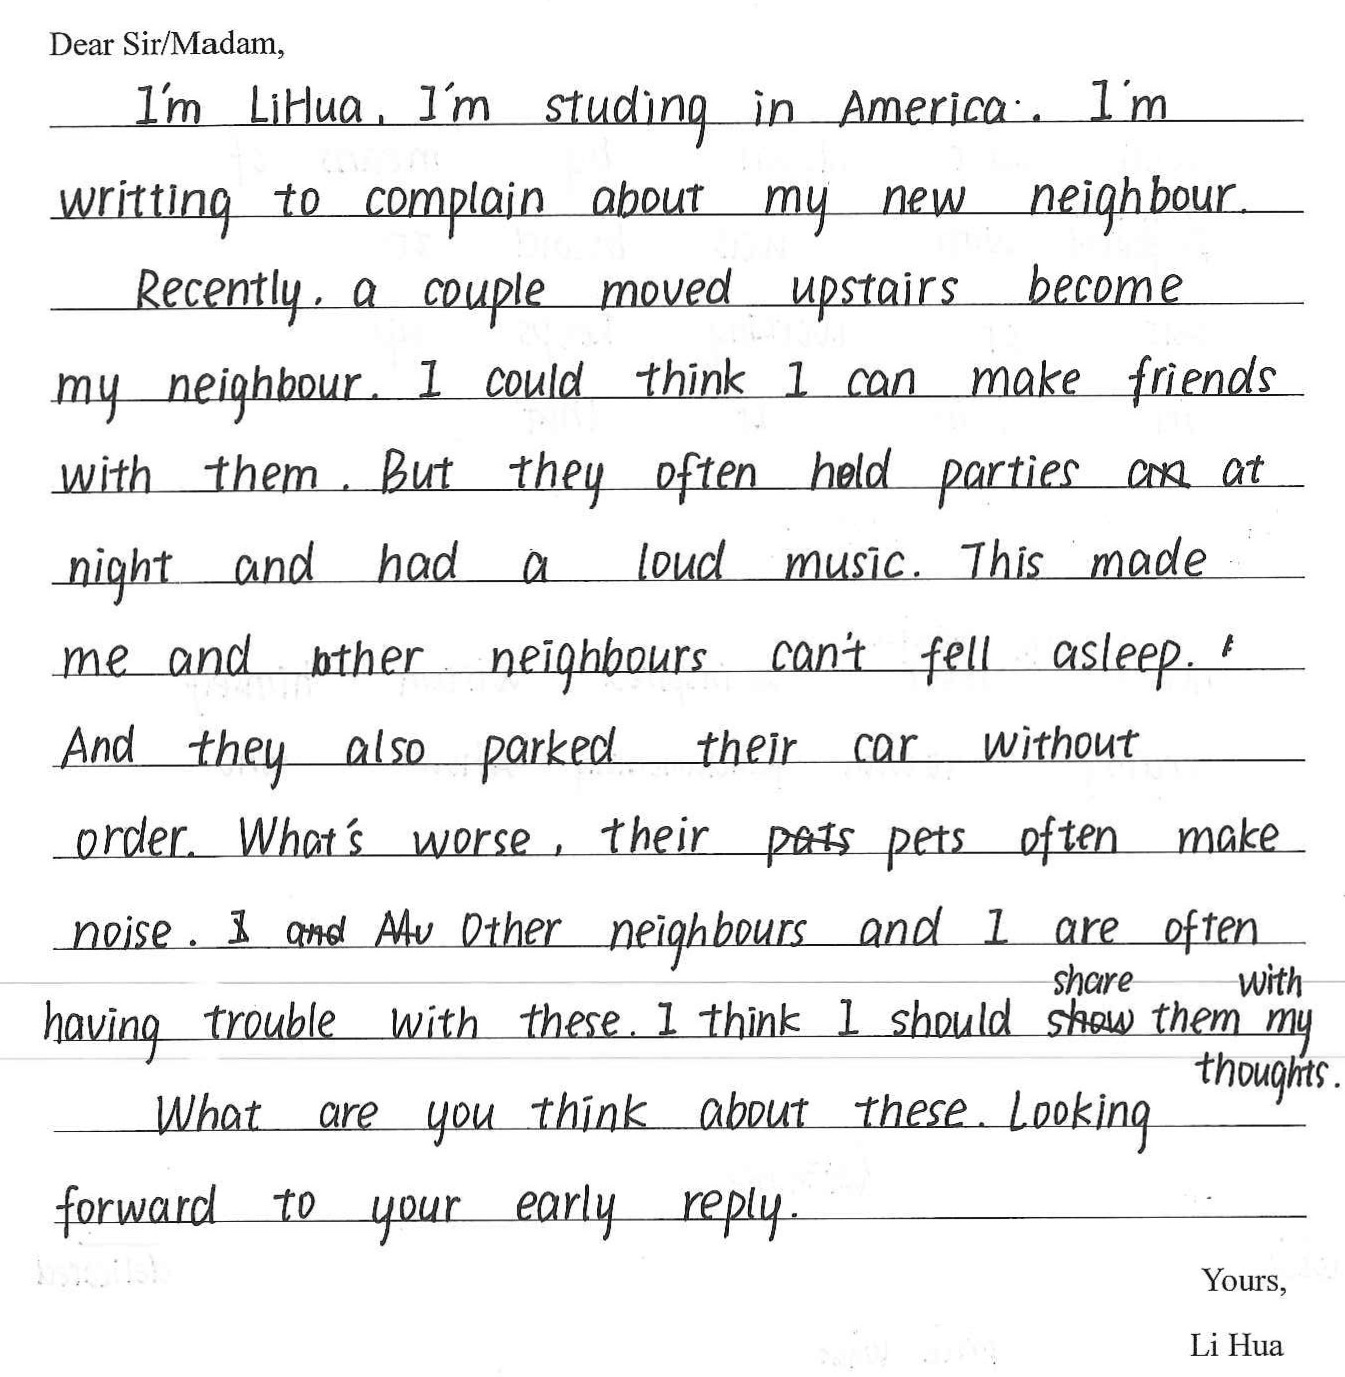 Dear Sir/Madam,
I'm LiHua. I'm studing in America. I'm
writting to complain about my new neighbour.
Recently, a couple moved upstairs become
my neighbour. I could think I can make friends
with them. But they often hold parties at
night and had a loud music. This made
me and other neighbours can't fell asleep.
And they also parked their car without
order. What's worse, their pats pets often make
noise. I and My Other neighbours and I are often
share with
having trouble with these. I think I should show them my
thoughts.
What are you think about these. Looking
forward to your early reply.
Yours,
Li Hua